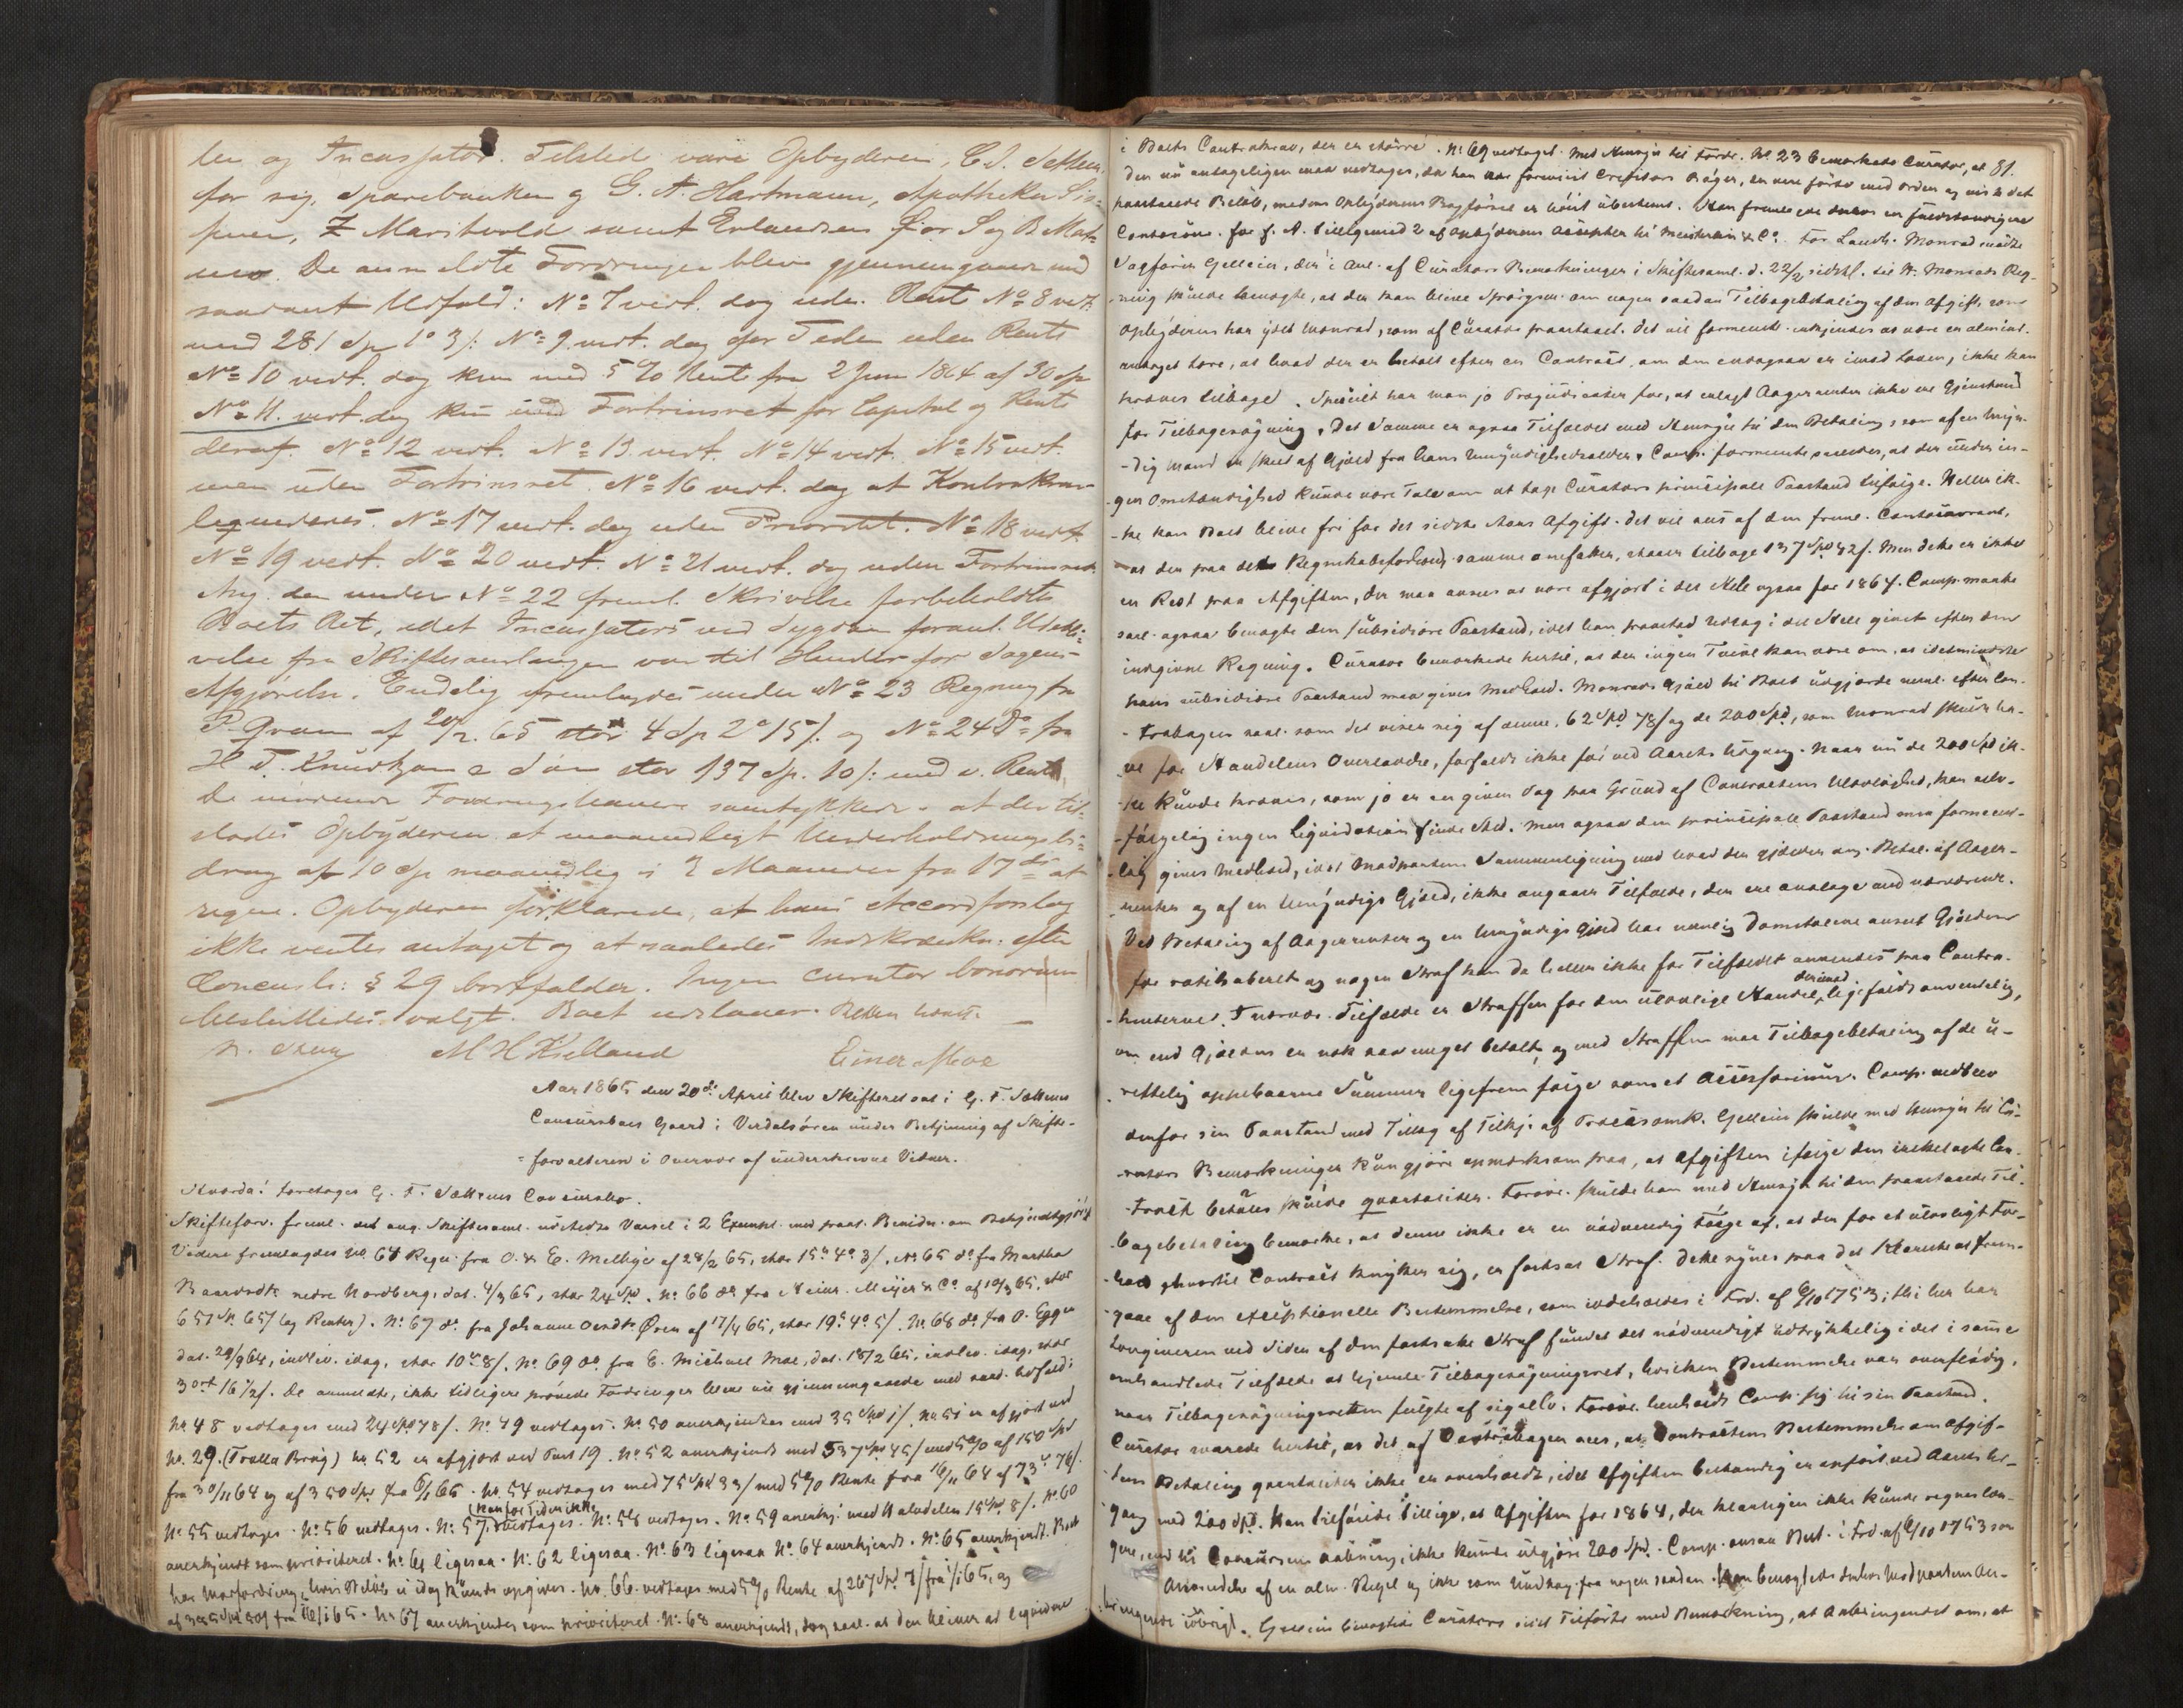 ler og Incassator. Tilstede vare Opbyderen, C. J.
for sig, Sparebanken g G. A. Hartmann, Apotheker
Z Maritvold samt Erlandsen for S og B
De anmeldte Fordringer bleve gjennemgaaede med
saadant Udfald: No 7 vedt. dog uden Rente No 8 vedt.
med 281 Sp 1 o 3 /: No 9 vedt. dog for Tiden uden Rente
No 10 vedt. dog kun med 5 % Rente fra 2 Juni 1864 af 30 Sp
No 11. vedt. dog kun med Fortrinsret for Capital og Rente
deraf. No 12 vedt. No 13. vedt. No 14 vedt. No 15 vedt.
men uden Fortrinsret. No 16 vedt. dog at Kontrakten
No 17 vedt. dog uden Prioritet. No 18 vedt.
No 19 vedt. No 20 vedt. No 21 vedt. dog uden Fortrinsret.
Ang. den under No 22 freml. Skrivelse forbeholdtes
Boets Ret, idet Incassators ved Sygdom foranl. Udebli-
velse fra Skiftesamlingen var til Hinder for Sagens
Afgjørelse. Endelig fremlagdes under No 23 Regning fra
P. Qvam af 20/2. 65 stor 4 Sp 2 o 15 /. og No 24 Do fra
H. F. Knudtzon & Søn stor 137 Sp. 10 /: med v. Rente
De mødende Fordringshavere samtykkede i at der til-
stodes Opbyderen et maanedligt Underholdningsbi-
drag af 10 Sp maanedlig i 2 Maaneder fra 17de at
regne. Opbyderen forklarede, at hans Accordforslag
ikke ventes antaget og at saaledes Indskrænkn. efter
Concursl: § 29 bortfalder. Ingen curator bonorum
besluttedes valgt. Boet udstaaer. Retten hævet.
M H Kielland Einer Moe
Aar 1865 den 20de April blev Skifteret sat i G. F. Sættems
Concursboes Gaard i Verdalsøren under Betjening af Skifte-
forvalteren i Overvær af underskrevne Vidner.
Hvorda: foretoges G. F. Sættems Concursbo.
Skifteforv. freml. det ang. Skiftesaml. udstedte Varsel i 2 Exempl. med paat. Bevidn. om Bekjendtgjør.
Videre fremlagdes No 64 Regn. fra O. & E. Melhye af 28/2 65, stor 15 4 o 3/, No 65 do fra Martha
Baarddtr. nedre Nordberg, dat. 4/3 65, stor 24 Spd. No 66 do fra Heinr. Meyer & Co af 10/3 65, stor
657 Sp. 65/ (og Renter). No 67 do fra Johanne Øren af 17/4 65, stor 19 4 o 5/. No 68 do fra O. Egge
dat. 29/9 64, indlev. idag, stor 10 8/. No 69 do fra E. Michael Moe, dat. 18/2 65, indlev. idag, stor
3 ort 16 1/2/. De anmeldte, ikke tidligere prøvede Fordringer bleve nu gjennemgaaede med saad. Udfald:
No 48 vedtages med 24 Spd 48/. No 49 vedtages. No 50 anerkjendes med 35 Spd 1/. No 51 er afgjort ved
No. 29. (Trolla Brug) No. 52 er afgjort ved Post 19. No 52 anerkjendt med 537 Spd 45/ med 5% af 150 Spd
fra 30/11 64 og af 350 Spd fra 6/1 65. No. 54 vedtages med 75 Spd 33/ med 5% Rente fra 16/11 64 af 73 76/.
No 55 vedtages. No 56 vedtages. No 57 (kan for Tiden ikke) vedtages. No 58 vedtages. No 59 anerkj. med Halvdelen 15 Spd 8/. No 60
anerkjendt som prioriteret. No 61 ligesaa. No 62 ligesaa. No 63 ligesaa No. 64 anerkjendt. No 65 anerkjendt. Boet
har Modfordring, hvis Beløb ei idag kunde opgives. No. 66. vedtages med 5% Rente af 267 Spd 7/ fra 1/1 65, og
fra 1/1 65. No 67 anerkjendes som prioriteret. No 68 anerkjendt, dog saal. at den bliver at liqvidere
i Boets Contrakrav, der er større. No 69 vedtaget. Med Hensyn til Fordr. No 23 bemærkede Curator, at 81.
den nu antageligen maa vedtages, da han har foreviist Creditors Bøger, der vare førte med Orden og viste det
paastaaede Beløb, medens Opbyderens Bogførsel er høist ubestemt. Han fremlagde derhos en fuldstændigere
For Landh. Monrad mødte
Sagfører Gellein, der i Anl. af Curators Bemærkninger i Skiftesaml. d. 22/2 sidstl. til Hr. Monrads Reg-
ning skulde benægte, at der kan blive Spørgsm. om nogen saadan Tilbagebetaling af den Afgift, som
Opbyderen har ydet Monrad, som af Curator paastaaet. Det vil formentl. erkjendes at være en almind.
antaget Lære, at hvad der er betalt efter en Contract, om den endogsaa er imod Loven, ikke kan
kræves tilbage. Specielt har man jo Præjudicater for, at erlagt Aagerrenter ikke ere Gjenstand
for Tilbagesøgning. Det Samme er ogsaa Tilfældet med Hensyn til den Betaling, som af en Umyn-
-dig Mand er skeet af Gjæld fra hans Umyndighedsalder. Comp. formente saaledes, at der under in-
gen Omstændighed kunde være Tale om at tage Curators principale Paastand tilfølge. Heller ik-
-ke kan Boet blive fri for det sidste Aars Afgift. Det vil sees af den freml. Contocourant,
at der paa dette Regnskabsforhold samme omfatter, staaer tilbage 137 Spd 92/. Men dette er ikke
en Rest paa Afgiften, der maa ansees at være afgjort i det Hele ogsaa for 1864. Comp. maatte
saal. ogsaa benægte den subsidiære Paastand, idet han paastod Udlæg i det Hele givet efter den
indgivne Regning. Curator bemærkede hertil, at der ingen Tvivl kan være om, at idetmindste
hans subsidiære Paastand maa gives Medhold. Monrads Gjæld til Boet udgjorde nemL. efter Con-
-trabogen saal. som det viser sig af denne, 62 Spd 78/ og de 200 Spd, som Monrad skulde ha-
-ve for Handelens Overladelse, forfaldt ikke før ved Aarets Udgang. Naar nu de 200 Spd ik-
-ke kunde kræves, som jo er en given Sag paa Grund af Contractens Ulovlighed, kan selv-
-følgelig ingen Liqvidation finde Sted. Men ogsaa den principale Paastand maa formeent-
-lig gives Medhold, idet Modpartens Sammenligning med hvad der gjælder ang. Betal. af Aager-
renter og af en Umyndigs Gjæld, ikke angaaer Tilfælde, der ere analoge med nærværende.
Ved Betaling af Aagerrenter og en Umyndigs Gjæld har nemlig Domstolene anseet Gjælden
for ratihaberet og nogen Straf kan da heller ikke for Tilfældet anvendes paa Contra-
henterne. I nærvær. Tilfælde er Straffen for den ulovlige Handel derimod ligefuldt anvendelig,
om end Gjælden er nok saa meget betalt, og med Straffen maa Tilbagebetaling af de u-
-rettelig oppebaarne Summer ligefrem følge som et Accessorium. Comp. nedlagde
derfor sin Paastand med Tillæg af Tilkj. af Procesomk. Gellein skulde med Hensyn til Cu-
-rators Bemærkninger kun gjøre opmærksom paa, at Afgiften ifølge den irettelagte Con-
-tract betales skulde qvartaliter. Forøvr. skulde han med Hensyn til den paastaaede Til-
-bagebetaling bemærke, at denne ikke er en nødvendig Følge af, at der for et ulovligt For-
-hold hvortil Contract knytter sig, er fastsat Straf. Dette synes paa det Klareste at frem-
-gaae af den exceptionelle Bestemmelse, som indeholdes i Frd. af 6/10 1753; thi her har
Lovgiveren ved Siden af den fastsatte Straf fundet det nødvendigt udtrykkelig i det i samme
omhandlede Tilfælde at hjemle Tilbagesøgningsret, hvilken Bestemmelse var overflødig,
naar Tilbagesøgningsretten fulgte af sig selv. Forøvr. henholdt Comp. sig til sin Paastand.
Curator svarede hertil, at det af Contrabogen sees, at Contractens Bestemmelse om Afgif-
-tens Betaling qvartaliter ikke er overholdt, idet Afgiften bestandig er anført ved Aarets Ud-
gang med 200 Spd. Han tilføiede tillige, at Afgiften for 1864, der klarligen ikke kunde regnes læn-
gere, end til Concursens Aabning, ikke kunde udgjøre 200 Spd. Comp. ansaa Best. i Frd. af 6/10 1753 som
Anvendelse af en alm. Regel og ikke som Undtag. fra nogen saadan. Han benægtede derhos Modpartens An-
bringende iøvrigt. Gellein benægtede Curators sidst Tilførte med Bemærkning, at Anbringendet om, at